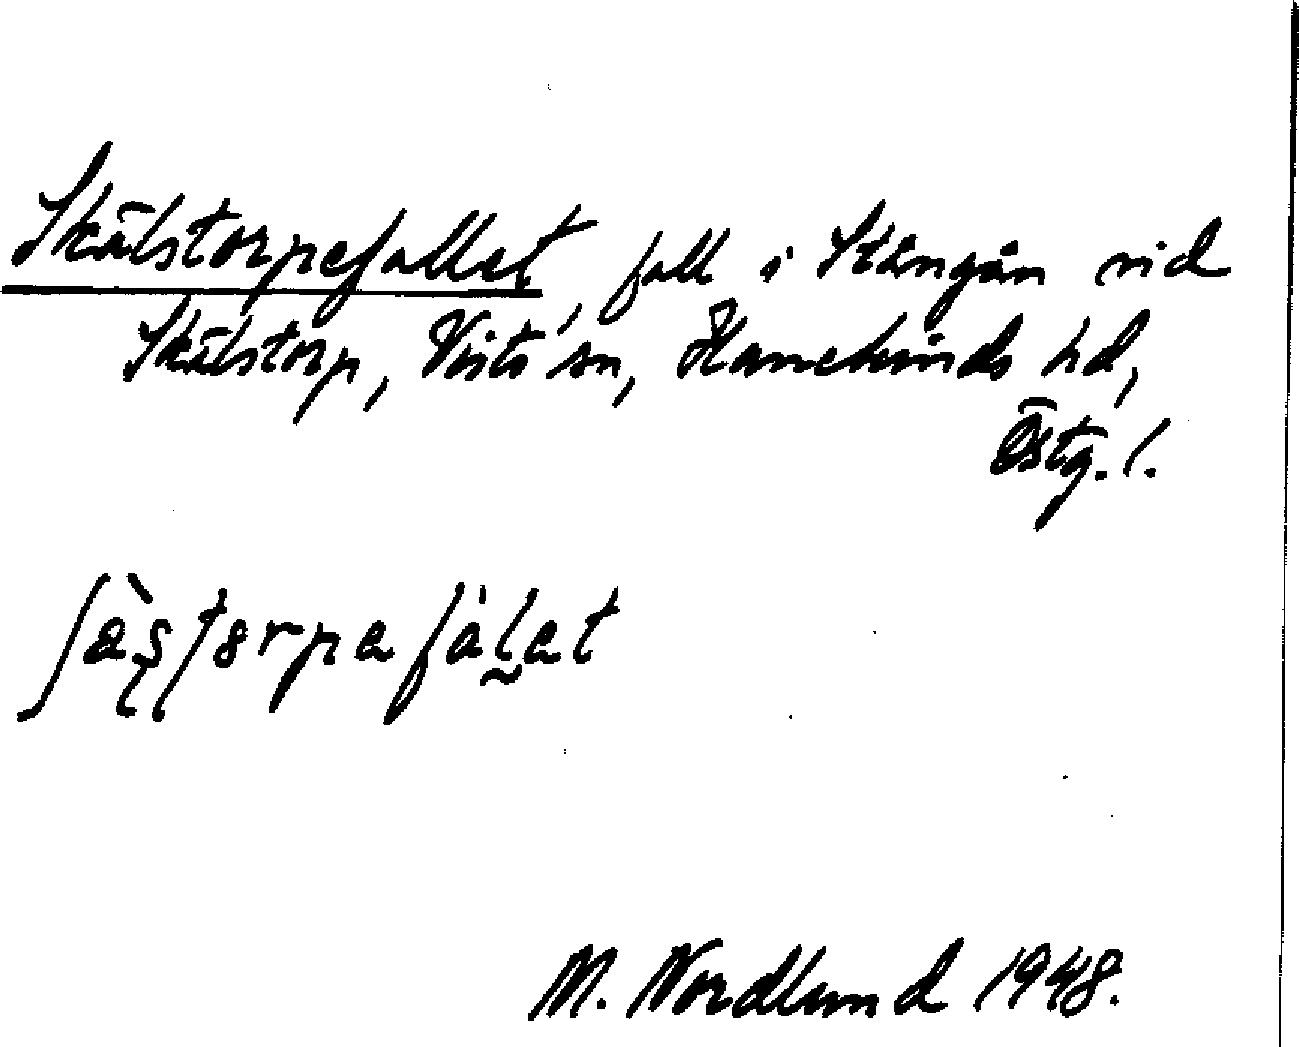 Skälstorpefallet, fall i Stångån vid
Skälstorp, Vists sn, Hanekinds hd,
Östg. l.
M. Nordlund 1948.